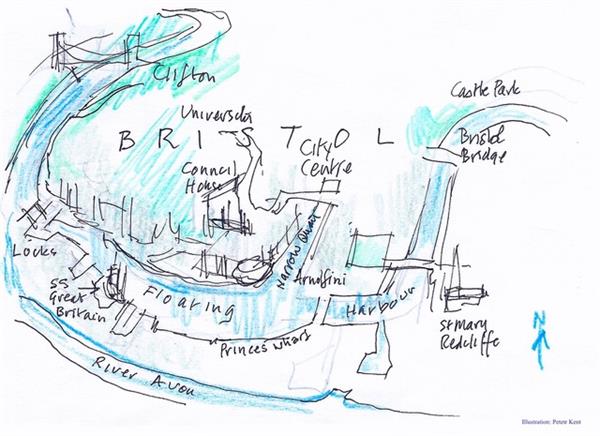 Clifton
Castle Park
University
BRISTOL
City
Centre
Bristol
Bridge
Council
House
Narrow Quay
Locks
Arnolfini
SS
Great
Britain
Floating
Harbour
Princes Wharf
St Mary
Redcliffe
River Avon
N
Illustration: Peter Kent